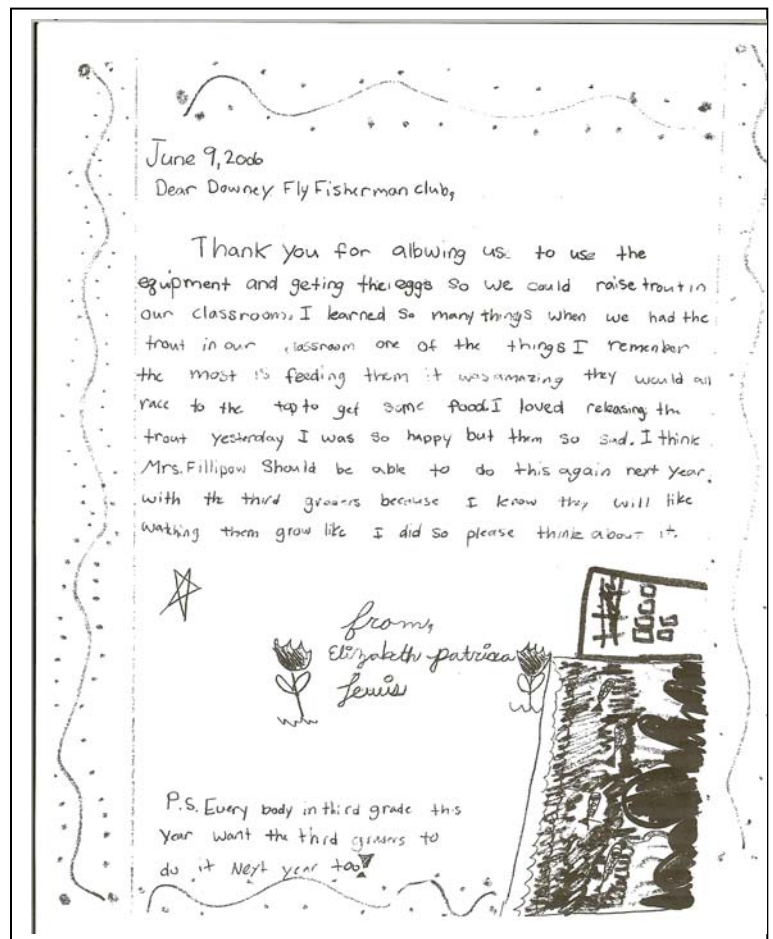 June 9, 2006
Dear Downey Fly Fisherman club,
Thank you for allowing us to use the
equipment and geting the eggs so we could raise trout in
our classroom. I learned so many things when we had the
trout in our classroom one of the things I remember
the most is feeding them it was amazing they would all
race to the top to get some food. I loved releasing the
trout yesterday I was so happy but them so sad. I think
Mrs. Fillipow Should be able to do this again next year.
with the third graders because I know they will like
wathing them grow like I did so please think about it.
from,
Elizabeth patricia
Lewis
P.S. Every body in third grade this
year want the third graders to
do it Next year too!